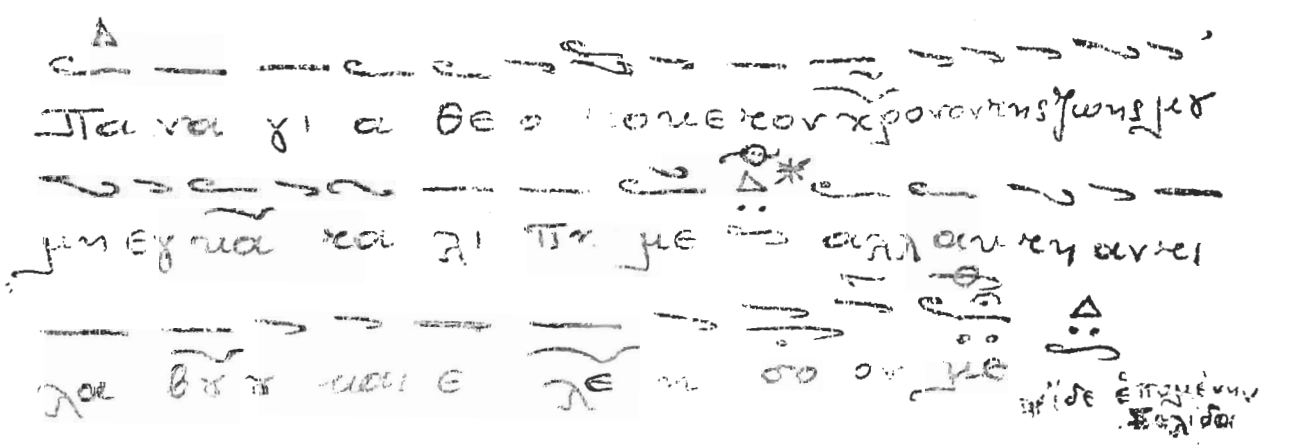 Πα να γι α θε ο τον χρονον της ζωης μου
μη εγ κα τα λι πη με αλλ αυτη αντι
λα βου και ε λε η σο ον με
ἴδε ἑπομένην σελίδα